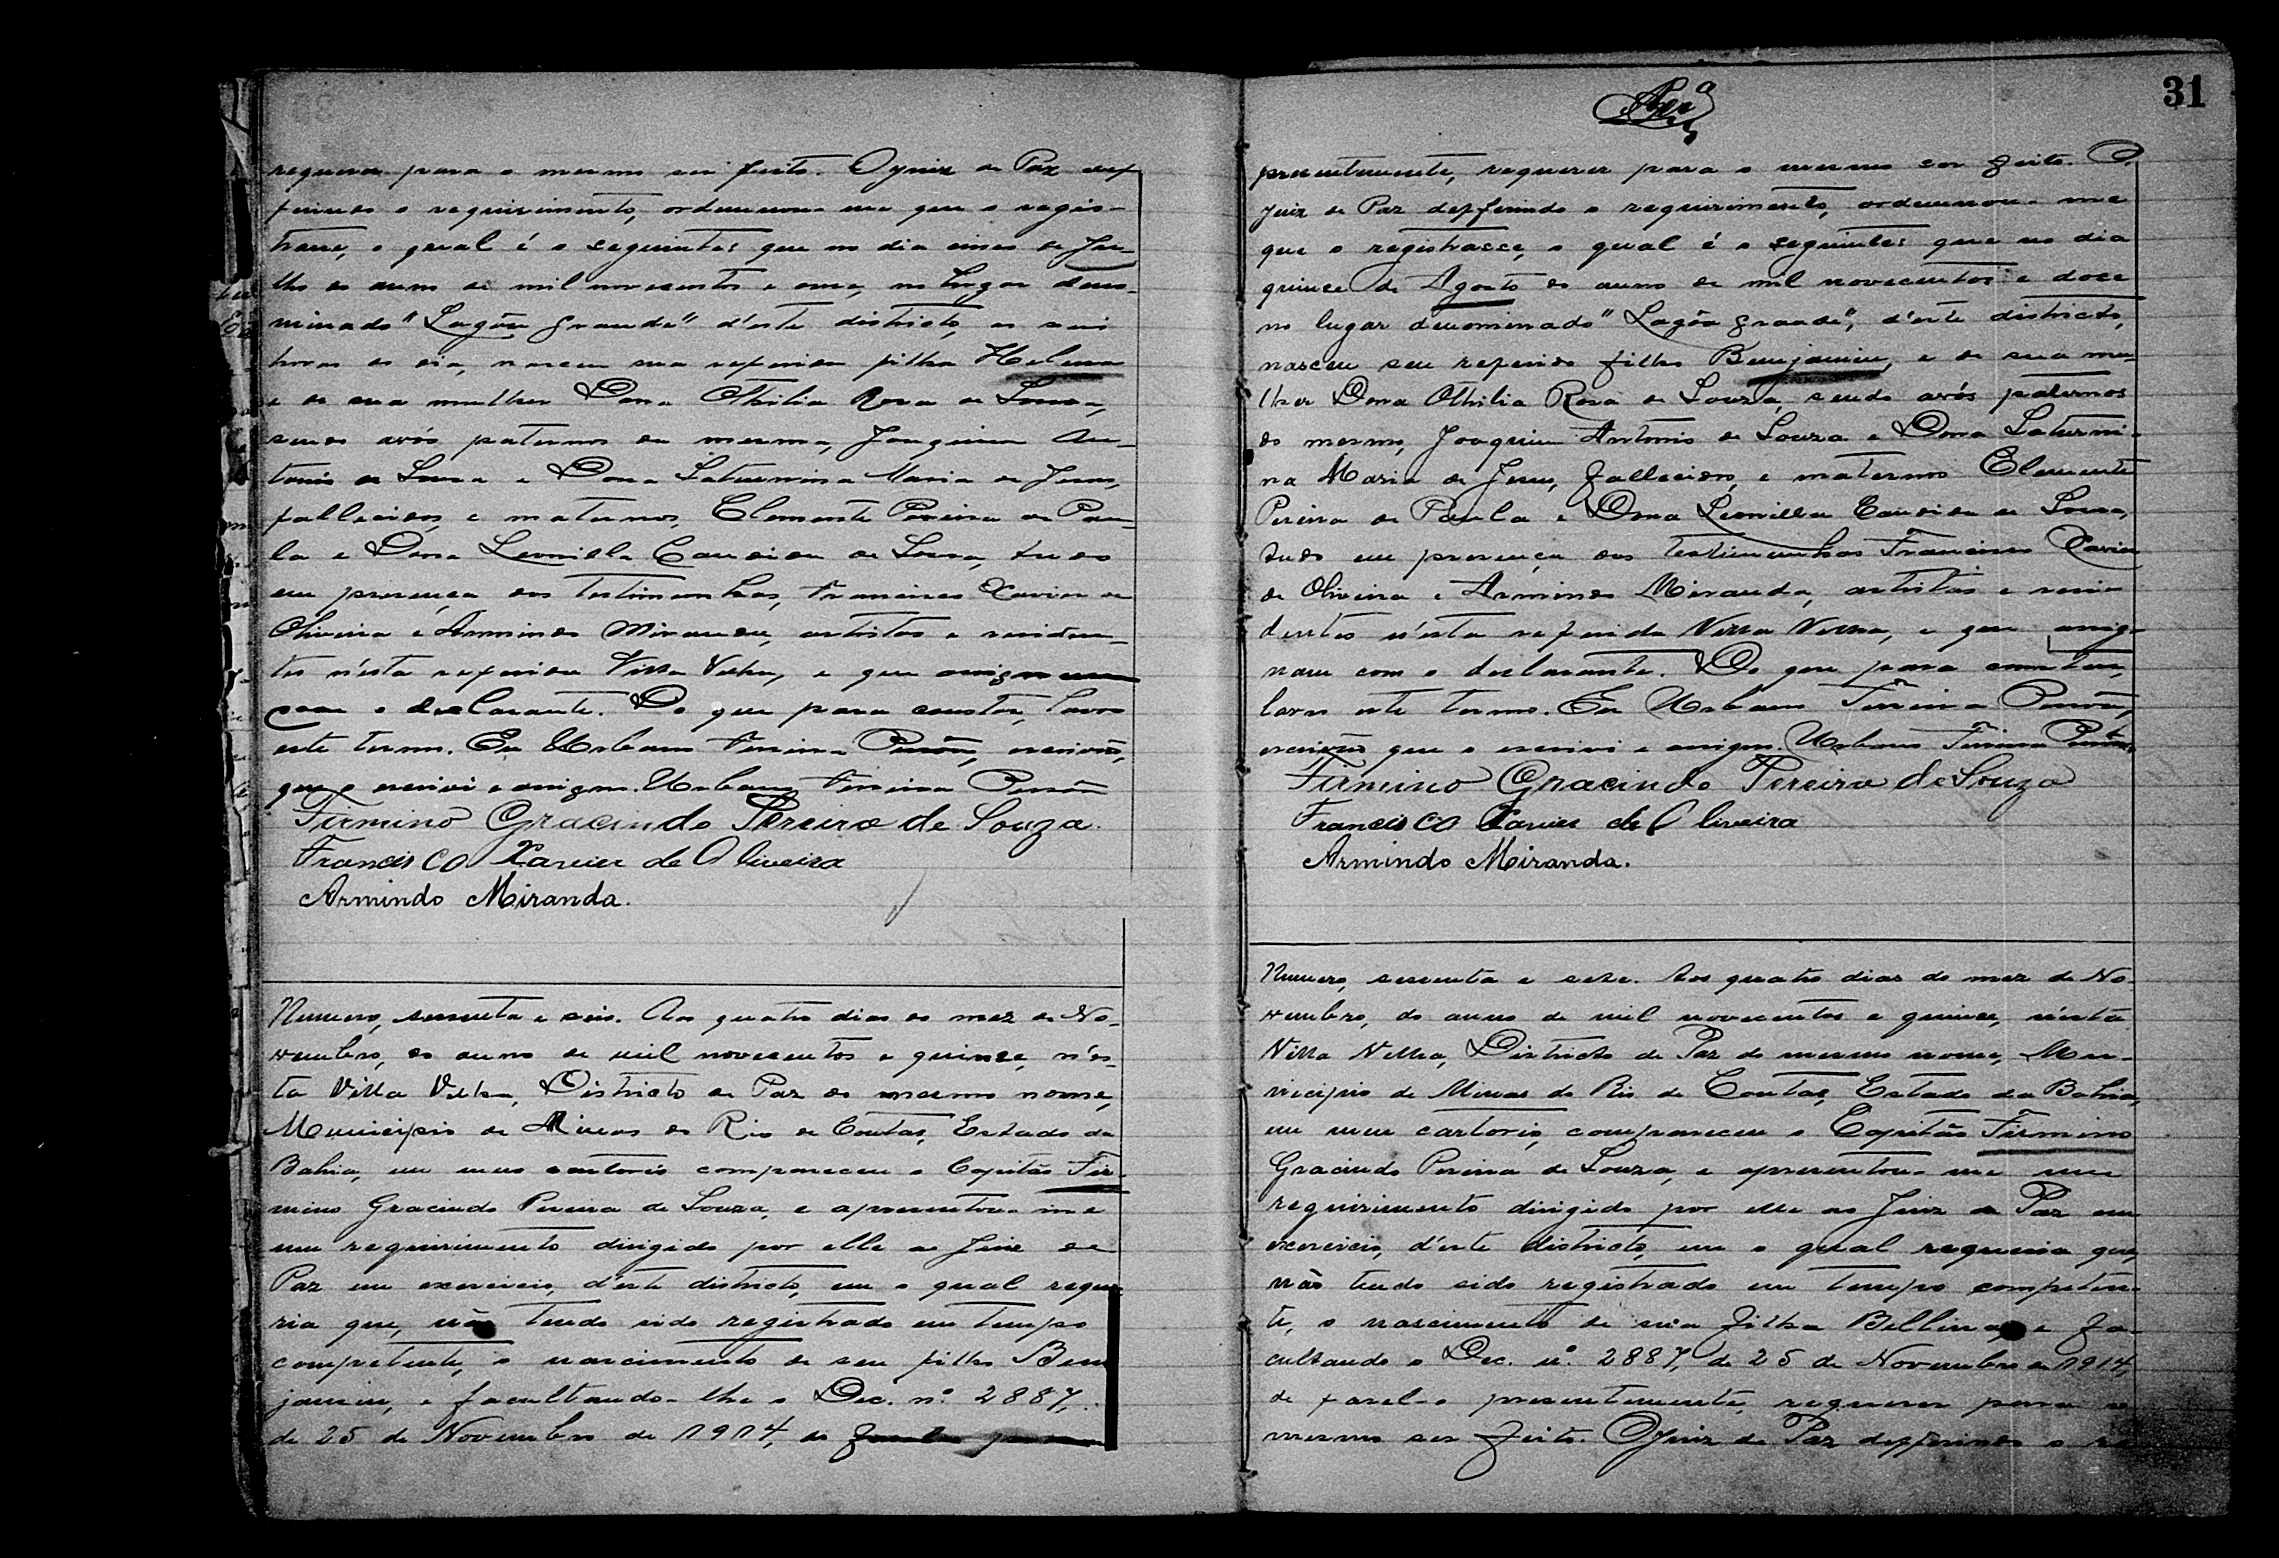 requerer para o mesmo ser feito. O Juiz de Paz def
ferindo o requirimento, ordennou-me que o regis-
trasse, o qual é o seguinte: que no dia cinco de Ju-
lho do anno de mil novecentos e onze, no lugar deno-
minado "Lagôa grande" d'este districto, as seis
horas do dia, nasceu sua referida filha Helena
e de sua mulher Dona Othilia Rosa de Souza,
sendo avós paternos da mesma, Joaquim An-
tonio de Souza e Dona Saturnina Maria de Jesus,
fallecidos, e maternos, Clemente Pereira de Pau-
la e Dona Leonilla Candida de Souza, tudo
em presença das testimunhas, Francisco Xavier de
Oliveira e Armindo Miranda, artistas e residen-
tes n'esta referida Villa Velha, e que assignam
com o declarante. Do que para constar, lavro
este termo. Eu Urbano Ferreira escrivão,
que o escrivi e assigno. Urbano Ferreira
Firmino Gracindo Pereira de Souza.
Francisco Xavier de Oliveira
Armindo Miranda.
Numero, sessenta e seis. Aos quatro dias do mez de No-
vembro, do anno de mil novecentos e quinze, n'es-
ta Villa Velha, Districto de Paz do mesmo nome,
Municipio de Minas do Rio de Contas, Estado da
Bahia, em meu cartorio compareceu o Capitão Fir-
mino Gracindo Pereira de Souza, e apresentou-me
um requirimento dirigido por elle ao Juiz de
Paz em exercicio, d'este districto, em o qual reque-
ria que, não tendo sido registrado em tempo
competente, o nascimento de seu filho Ben
jamim, e facultando-lhe o Dec. nº 2887,
de 25 de Novembro de 1914, de
31
presentemente, requerer para o mesmo ser feito. O
Juiz de Paz defferindo o requirimento, ordennou-me
que o registrasse, o qual é o seguinte: que no dia
quinze de Agosto do anno de mil novecentos e doze
no lugar denominado "Lagôa grande", d'este districto,
nasceu seu referido filho Benjamim, e de sua mu-
lher Dona Othilia Rosa de Souza, sendo avós paternos
do mesmo, Joaquim Antonio de Souza e Dona Saturni-
na Maria de Jesus, fallecidos, e maternos Clemente
Pereira de Paula e Dona Leonilla Candida de Souza,
tudo em presença das testimunhas Francisco Xavier
de Oliveira e Armindo Miranda, artistas e resi-
dentes n'esta referida Villa Velha, e que assig-
nam com o declarante. Do que para constar,
lavro este termo. Eu Urbano Ferreira
escrivão que o escrivi e assigno. Urbano Ferreira
Firmino Gracindo Pereira de Souza
Francisco Xavier de Oliveira
Armindo Miranda.
Numero, sessenta e sete. Aos quatro dias do mez de No-
vembro, do anno de mil novecentos e quinze, n'esta
Villa Velha, Districto de Paz do mesmo nome, Mu-
nicipio de Minas do Rio de Contas, Estado da Bahia,
em meu cartorio, compareceu o Capitão Firmino
Gracindo Pereira de Souza, e apresentou-me um
requirimento dirigido por elle ao Juiz de Paz em
exercicio, d'este districto, em o qual requeria que,
não tendo sido registrado em tempo competen-
te, o nascimento de sua filha Bellina, e fa-
cultando o Dec. nº. 2887, de 25 de Novembro de 1914,
de fazel-o presentemente, requerer para o
mesmo ser feito. O Juiz de Paz defferindo o re